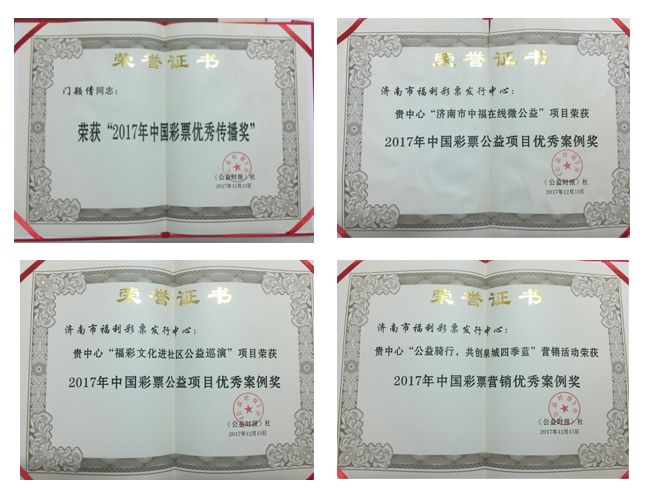 荣誉证书
门颖倩同志：
荣获“2017年中国彩票优秀传播奖”
《公益时报》社
2017年12月13日
荣誉证书
济南市福利彩票发行中心：
贵中心“济南市中福在线微公益”项目荣获
2017年中国彩票公益项目优秀案例奖
《公益时报》社
2017年12月13日
荣誉证书
济南市福利彩票发行中心：
贵中心“福彩文化进社区公益巡演”项目荣获
2017年中国彩票公益项目优秀案例奖
《公益时报》社
2017年12月13日
荣誉证书
济南市福利彩票发行中心：
贵中心“公益骑行，共创泉城四季蓝”营销活动荣获
2017年中国彩票营销优秀案例奖
《公益时报》社
2017年12月13日